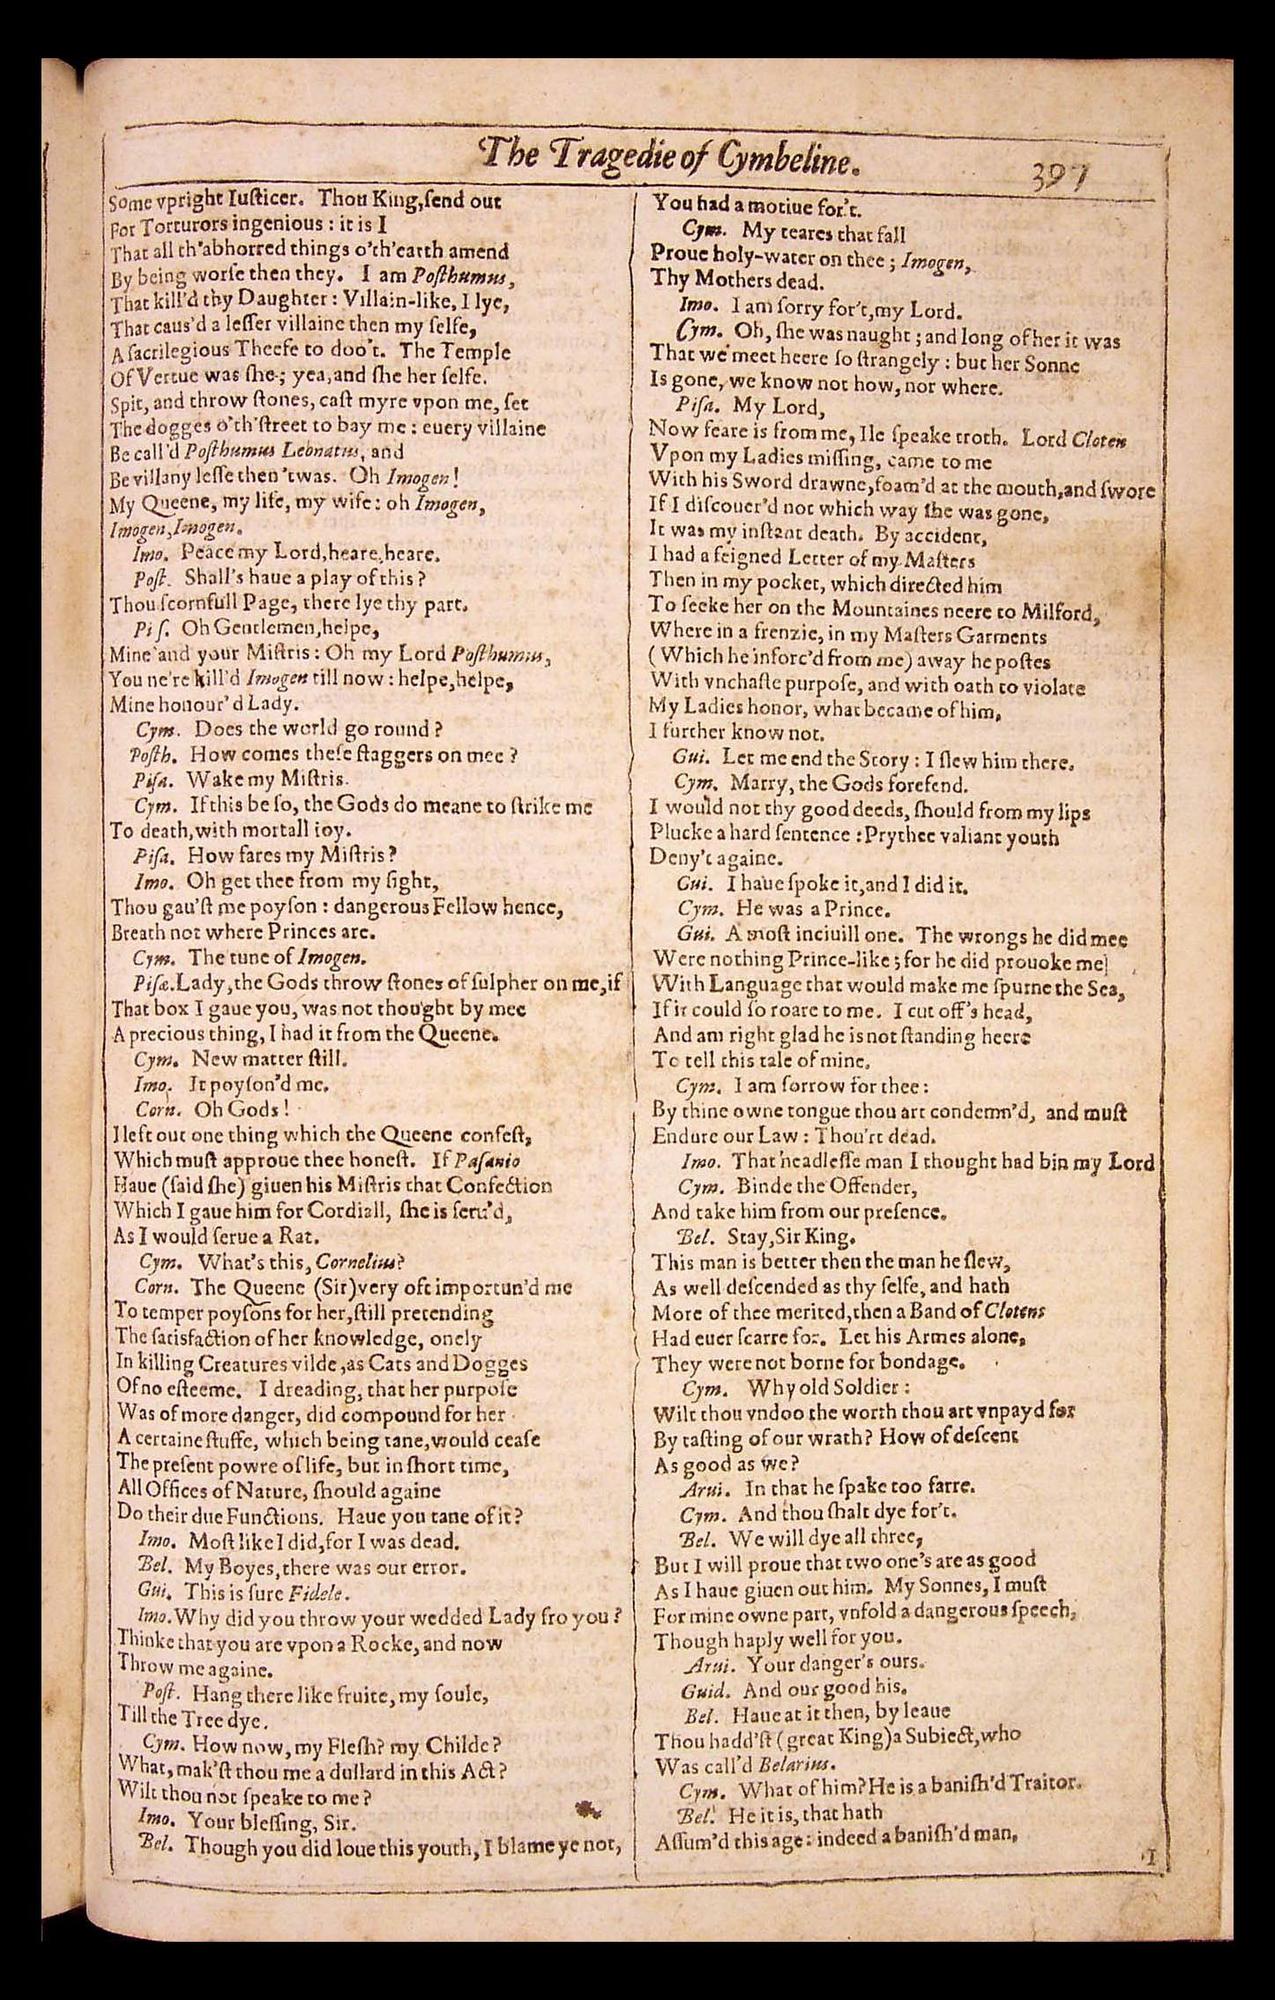 The Tragedie of Cymbeline.
397
Some vpright Iuſticer. Thou King, ſend out
For Torturors ingenious : it is I
That all th'abhorred things o'th'earth amend
By being worſe then they. I am Poſthumus,
That kill'd thy Daughter : Villain-like, I lye,
That caus'd a leſſer villaine then my ſelfe,
A ſacrilegious Theefe to doo't. The Temple
Of Vertue was ſhe ; yea, and ſhe her ſelfe.
Spit, and throw ſtones, caſt myre vpon me, ſet
The dogges o'th'ſtreet to bay me : euery villaine
Be call'd Poſthumus Leonatus, and
Be villany leſſe then 'twas. Oh Imogen !
My Queene, my life, my wife : oh Imogen,
Imogen, Imogen.
Imo. Peace my Lord, heare, heare.
Poſt. Shall's haue a play of this ?
Thou ſcornfull Page, there lye thy part.
Piſ. Oh Gentlemen, helpe,
Mine and your Miſtris : Oh my Lord Poſthumus,
You ne're kill'd Imogen till now : helpe, helpe,
Mine honour'd Lady.
Cym. Does the world go round ?
Poſth. How comes theſe ſtaggers on mee ?
Piſa. Wake my Miſtris.
Cym. If this be ſo, the Gods do meane to ſtrike me
To death, with mortall ioy.
Piſa. How fares my Miſtris ?
Imo. Oh get thee from my ſight,
Thou gau'ſt me poyſon : dangerous Fellow hence,
Breath not where Princes are.
Cym. The tune of Imogen.
Piſa. Lady, the Gods throw ſtones of ſulpher on me, if
That box I gaue you, was not thought by mee
A precious thing, I had it from the Queene.
Cym. New matter ſtill.
Imo. It poyſon'd me.
Corn. Oh Gods !
I left out one thing which the Queene confeſt,
Which muſt approue thee honeſt. If Paſanio
Haue (ſaid ſhe) giuen his Miſtris that Confection
Which I gaue him for Cordiall, ſhe is ſeru'd,
As I would ſerue a Rat.
Cym. What's this, Cornelius ?
Corn. The Queene (Sir) very oft importun'd me
To temper poyſons for her, ſtill pretending
The ſatisfaction of her knowledge, onely
In killing Creatures vilde, as Cats and Dogges
Of no eſteeme. I dreading, that her purpoſe
Was of more danger, did compound for her
A certaine ſtuffe, which being tane, would ceaſe
The preſent powre of life, but in ſhort time,
All Offices of Nature, ſhould againe
Do their due Functions. Haue you tane of it ?
Imo. Moſt like I did, for I was dead.
Bel. My Boyes, there was our error.
Gui. This is ſure Fidele.
Imo. Why did you throw your wedded Lady fro you ?
Thinke that you are vpon a Rocke, and now
Throw me againe.
Poſt. Hang there like fruite, my ſoule,
Till the Tree dye.
Cym. How now, my Fleſh ? my Childe ?
What, mak'ſt thou me a dullard in this Act ?
Wilt thou not ſpeake to me ?
Imo. Your bleſſing, Sir.
Bel. Though you did loue this youth, I blame ye not,
You had a motiue for't.
Cym. My teares that fall
Proue holy-water on thee ; Imogen,
Thy Mothers dead.
Imo. I am ſorry for't, my Lord.
Cym. Oh, ſhe was naught ; and long of her it was
That we meet heere ſo ſtrangely : but her Sonne
Is gone, we know not how, nor where.
Piſa. My Lord,
Now feare is from me, Ile ſpeake troth. Lord Cloten
Vpon my Ladies miſſing, came to me
With his Sword drawne, foam'd at the mouth, and ſwore
If I diſcouer'd not which way ſhe was gone,
It was my inſtant death. By accident,
I had a feigned Letter of my Maſters
Then in my pocket, which directed him
To ſeeke her on the Mountaines neere to Milford,
Where in a frenzie, in my Maſters Garments
(Which he inforc'd from me) away he poſtes
With vnchaſte purpoſe, and with oath to violate
My Ladies honor, what became of him,
I further know not.
Gui. Let me end the Story : I ſlew him there.
Cym. Marry, the Gods forefend.
I would not thy good deeds, ſhould from my lips
Plucke a hard ſentence : Prythee valiant youth
Deny't againe.
Gui. I haue ſpoke it, and I did it.
Cym. He was a Prince.
Gui. A moſt inciuill one. The wrongs he did mee
Were nothing Prince-like ; for he did prouoke me
With Language that would make me ſpurne the Sea,
If it could ſo roare to me. I cut off's head,
And am right glad he is not ſtanding heere
To tell this tale of mine.
Cym. I am ſorrow for thee :
By thine owne tongue thou art condemn'd, and muſt
Endure our Law : Thou'rt dead.
Imo. That headleſſe man I thought had bin my Lord
Cym. Binde the Offender,
And take him from our preſence.
Bel. Stay, Sir King.
This man is better then the man he ſlew,
As well deſcended as thy ſelfe, and hath
More of thee merited, then a Band of Clotens
Had euer ſcarre for. Let his Armes alone,
They were not borne for bondage.
Cym. Why old Soldier :
Wilt thou vndoo the worth thou art vnpayd for
By taſting of our wrath ? How of deſcent
As good as we ?
Arui. In that he ſpake too farre.
Cym. And thou ſhalt dye for't.
Bel. We will dye all three,
But I will proue that two one's are as good
As I haue giuen out him. My Sonnes, I muſt
For mine owne part, vnfold a dangerous ſpeech,
Though haply well for you.
Arui. Your danger's ours.
Guid. And our good his.
Bel. Haue at it then, by leaue
Thou hadd'ſt (great King) a Subiect, who
Was call'd Belarius.
Cym. What of him ? He is a baniſh'd Traitor.
Bel. He it is, that hath
Aſſum'd this age : indeed a baniſh'd man,
I